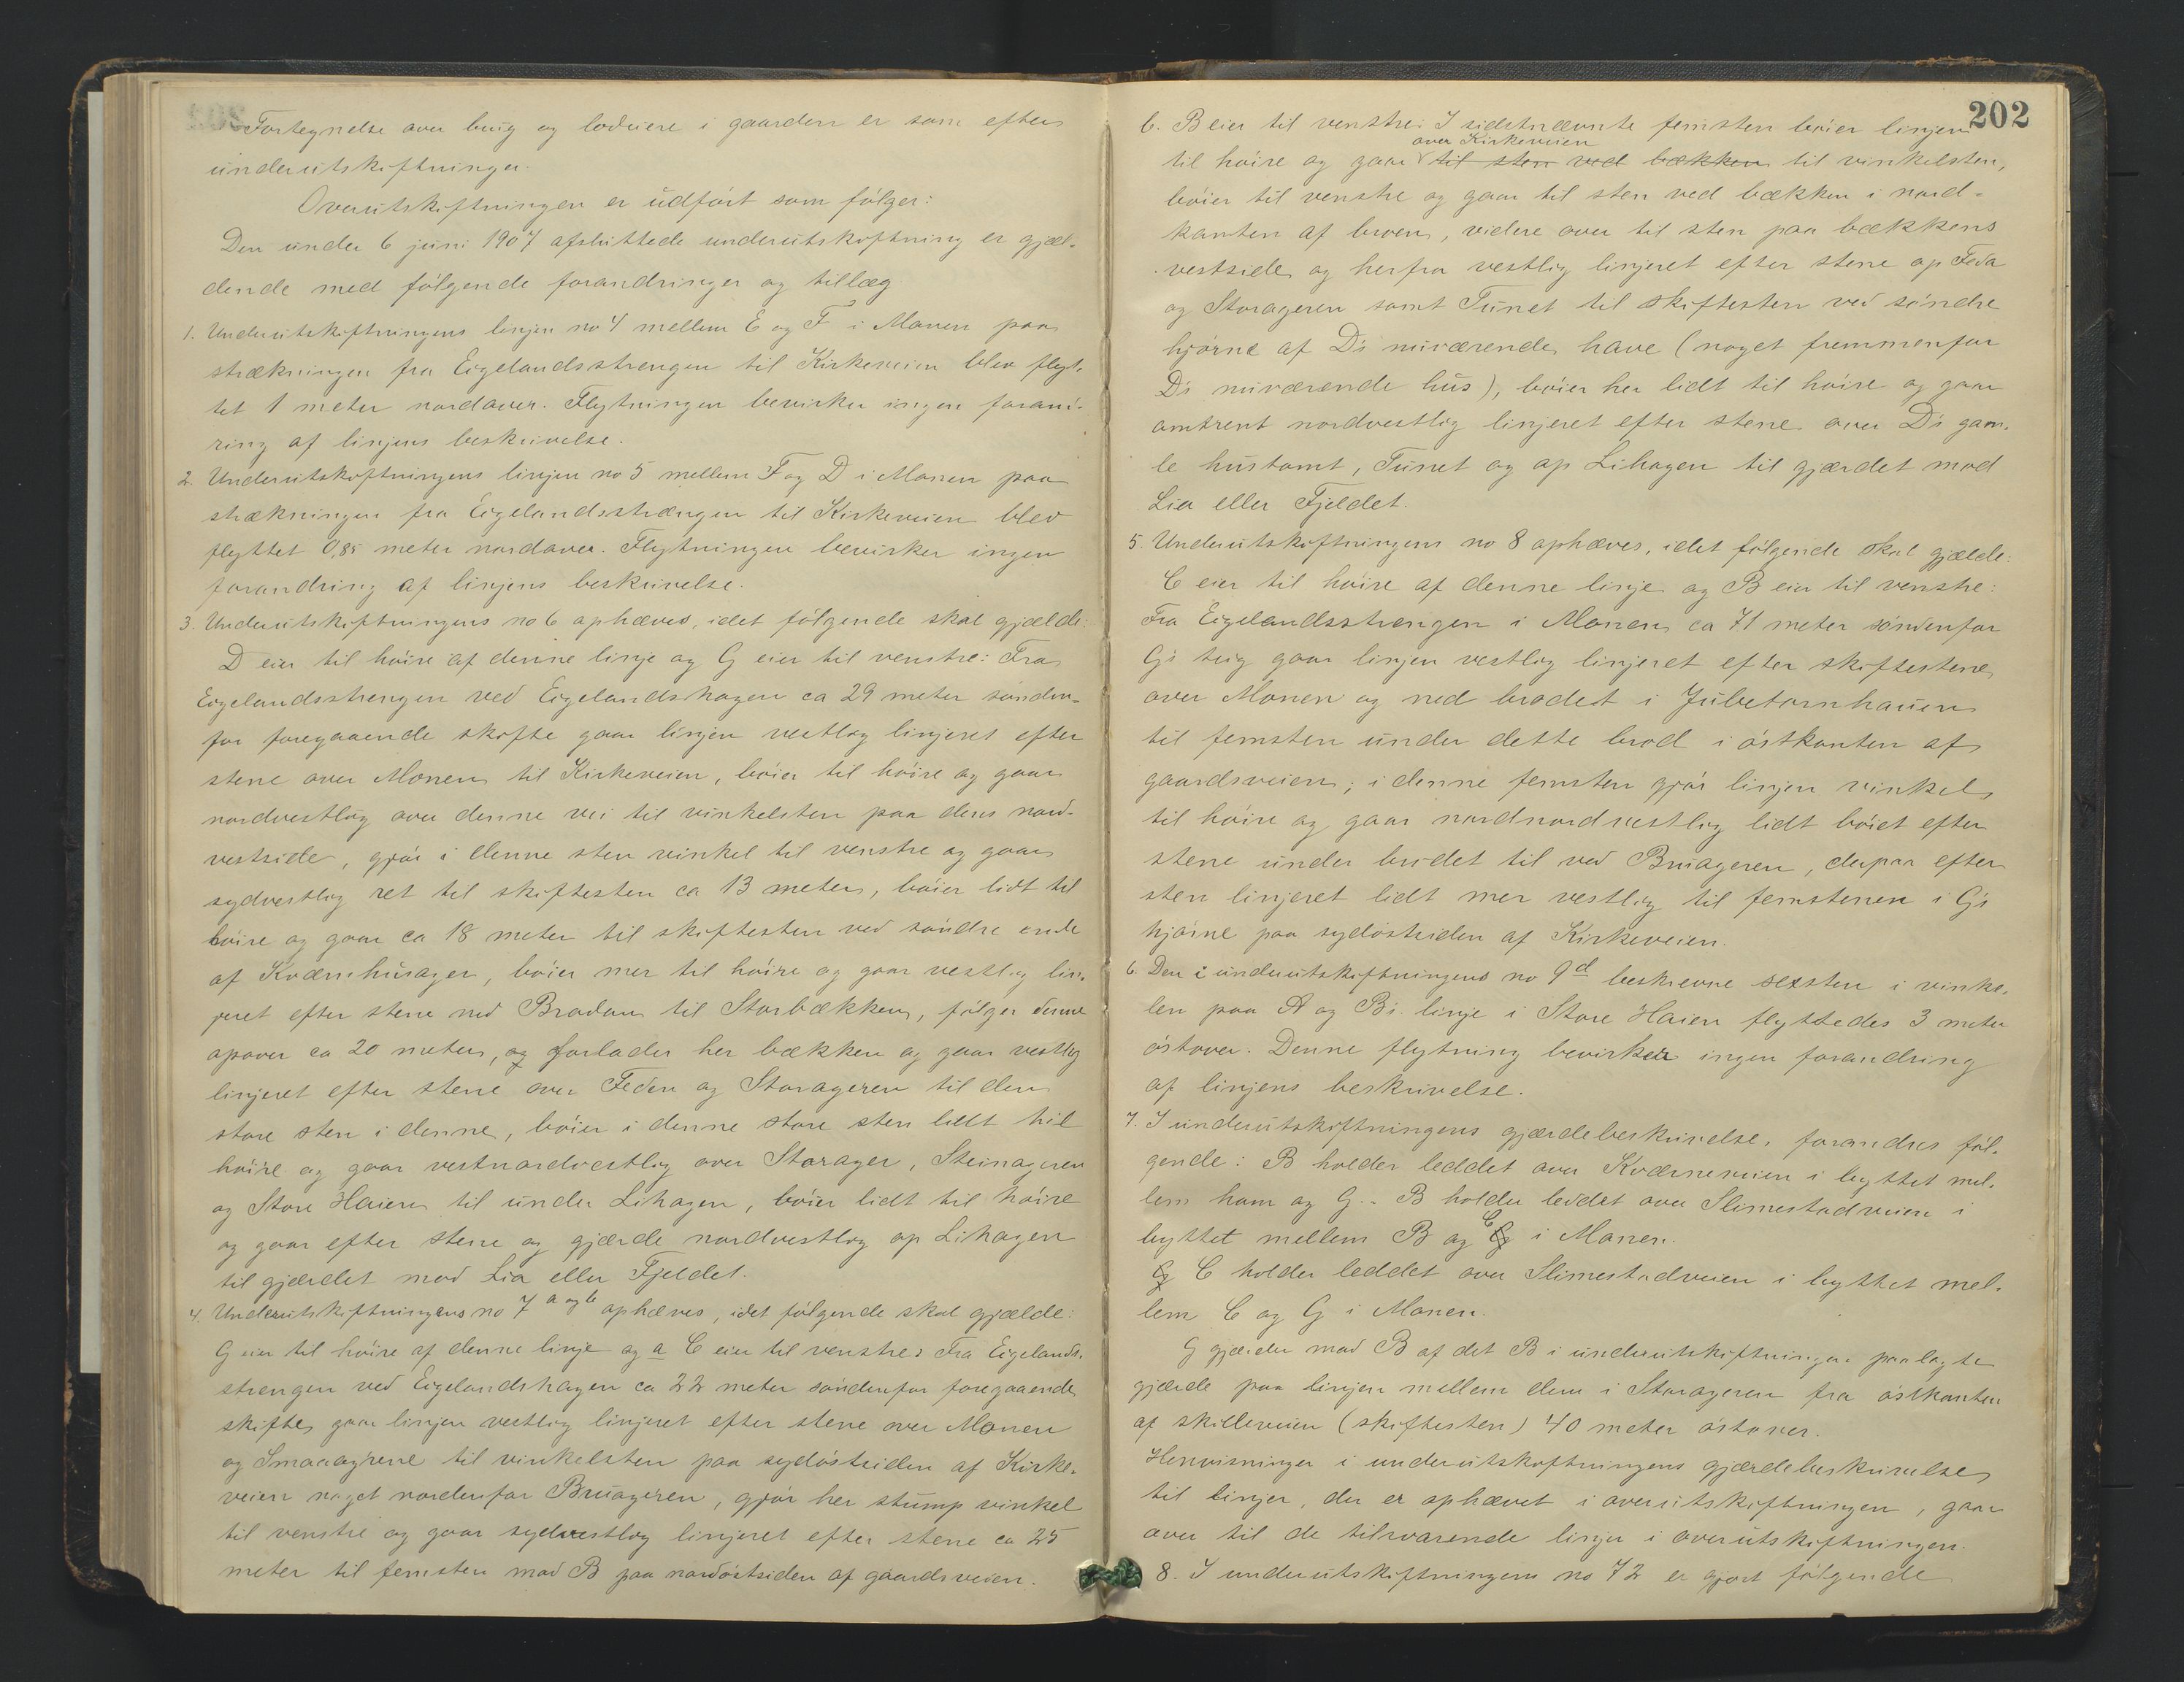 Fortegnelse over brug og lodeiere i gaarden er som efter
underutskiftningen.
Overutskiftningen er udført som følger:
Den under 6 juni 1907 afsluttede underutskiftning er gjæl-
dende med følgende forandringer og tillæg
1. Underutskiftningens linjen no 4 mellem E og F i Monen paa
strækningen fra Eigelandsstrengen til Kirkeveien blev flyt-
tet 1 meter nordover. Flytningen bevirker ingen forand-
ring af linjens beskrivelse.
2. Underutskiftningens linjen no 5 mellem F og D i Monen paa
strækningen fra Eigelandsstrængen til Kirkeveien blev
flyttet 0,85 meter nordover. Flytningen bevirker ingen
forandring af linjens beskrivelse.
3. Underutskiftningens no 6 ophæves, idet følgende skal gjælde:
D eier til høire af denne linje og G eier til venstre: Fra
Eigelandsstrengen ved Eigelandshagen ca 29 meter sønden-
for foregaaende skifte gaar linjen vestlig linjeret efter
stene over Monen til Kirkeveien, bøier til høire og gaar
nordvestlig over denne vei til vinkelsten paa dens nord-
vestside, gjør i denne sten vinkel til venstre og gaar
sydvestlig ret til skiftesten ca 13 meter, bøier lidt til
høire og gaar ca 18 meter til skiftesten ved søndre ende
af Kværnhusager, bøier mer til høire og gaar vestlig lin-
jeret efter stene ned Bradan til Storbækken, følger denne
opover ca 20 meter, og forlader her bækken og gaar vestlig
linjeret efter stene over Feden og Storageren til den
store sten i denne, bøier i denne store sten lidt til
høire og gaar vestnordvestlig over Storager, Steinageren
og Store Haien til under Lihagen, bøier lidt til høire
og gaar efter stene og gjærde nordvestlig op Lihagen
til gjærdet mod Lia eller Fjeldet.
4. Underutskiftningens no 7 a og b ophæves, idet følgende skal gjælde:
G eier til høire af denne linje og a C eier til venstre: Fra Eigelands-
strengen ved Eigelandshagen ca 22 meter søndenfor foregaaende
skifte gaar linjen vestlig linjeret efter stene over Monen
og Smaaagrene til vinkelsten paa sydøstsiden af Kirke-
veien noget nordenfor Bruageren, gjør her stump vinkel
til venstre og gaar sydvestlig linjeret efter stene ca 25
meter til femsten mod B paa nordøstsiden af gaardsveien.
202
b. B eier til venstre: I sidstnævnte femsten bøier linjen
over Kirkeveien
til høire og gaar til sten ved bækken til vinkelsten,
bøier til venstre og gaar til sten ved bækken i nord-
kanten af broen, videre over til sten paa bækkens
vestside og herfra vestlig linjeret efter stene op Feda
og Storageren samt Tunet til skiftesten ved søndre
hjørne af D's nuværende have (noget fremmenfor
D's nuværende hus), bøier her lidt til høire og gaar
omtrent nordvestlig linjeret efter stene over D's gam-
le hustomt, Tunet og op Lihagen til gjærdet mod
Lia eller Fjeldet.
5. Underutskiftningens no 8 ophæves, idet følgende skal gjælde:
C eier til høire af denne linje og B eier til venstre:
Fra Eigelandsstrengen i Monen ca 71 meter søndenfor
G's teig gaar linjen vestlig linjeret efter skiftestene
over Monen og ned bradet i Jubetornhauen
til femsten under dette brad i østkanten af
gaardsveien; i denne femsten gjør linjen vinkel
til høire og gaar nordnordvestlig lidt bøiet efter
stene under bradet til ved Bruageren, derpaa efter
sten linjeret lidt mer vestlig til femstenen i G's
hjørne paa sydøstsiden af Kirkeveien.
6. Den i underutskiftningens no 9 d beskrevne sexsten i vinke-
len paa A og B's linje i Store Haien flyttedes 3 meter
østover. Denne flytning bevirker ingen forandring
af linjens beskrivelse.
7. I underutskiftningens gjærdebeskrivelse, forandres føl-
gende: B holder leddet over Kværneveien i byttet mel-
lem ham og G. - B holder leddet over Slimestadveien i
byttet mellem B og C G i Monen.
G C holder leddet over Slimestadveien i byttet mel-
lem C og G i Monen.
G gjærder mod B af det B i underutskiftningen paalagte
gjærde paa linjen mellem dem i Storageren fra østkanten
af skilleveien (skiftesten) 40 meter østover.
Henvisninger i underutskiftningens gjærdebeskrivelse
til linjer, der er ophævet i overutskiftningen, gaar
over til de tilsvarende linjer i overutskiftningen.
8. I underutskiftningens no 72 er gjort følgende